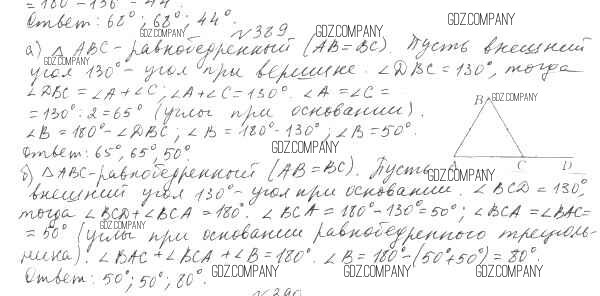 = 180° - 136° = 44°.
Ответ: 68°; 68°; 44°.
№389
а) △ABC - равнобедренный (AB = BC). Пусть внешний
угол 130° - угол при вершине. ∠DBC = 130°, тогда
∠DBC = ∠A + ∠C; ∠A + ∠C = 130°. ∠A = ∠C =
= 130° : 2 = 65° (углы при основании).
∠B = 180° - ∠DBC; ∠B = 180° - 130°; ∠B = 50°.
Ответ: 65°, 65°, 50°.
B
A C D
б) △ABC - равнобедренный (AB = BC). Пусть
внешний угол 130° - угол при основании. ∠BCD = 130°,
тогда ∠BCD + ∠BCA = 180°. ∠BCA = 180° - 130° = 50°; ∠BCA = ∠BAC =
= 50° (углы при основании равнобедренного треуголь-
ника). ∠BAC + ∠BCA + ∠B = 180°. ∠B = 180° - (50° + 50°) = 80°.
Ответ: 50°; 50°; 80°.
№390
GDZ.COMPANY
GDZ.COMPANY
GDZ.COMPANY
GDZ.COMPANY
GDZ.COMPANY
GDZ.COMPANY
GDZ.COMPANY
GDZ.COMPANY
GDZ.COMPANY
GDZ.COMPANY
GDZ.COMPANY